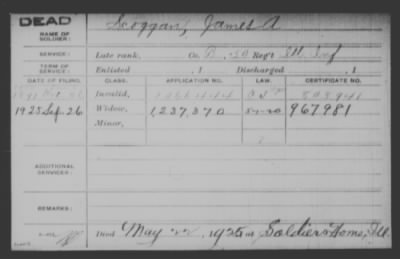 DEAD
NAME OF SOLDIER: Scoggan, James A
SERVICE: Late rank, Co. B, 30 Reg't Ill Inf
TERM OF SERVICE: Enlisted , 1 Discharged , 1
DATE OF FILING. CLASS. APPLICATION NO. LAW. CERTIFICATE NO.
Invalid,
1925 Sep. 26 Widow, 1,237,370 967,981
Minor,
ADDITIONAL SERVICES:
REMARKS:
Died May 22, 1925 at Soldiers Home, Ill.